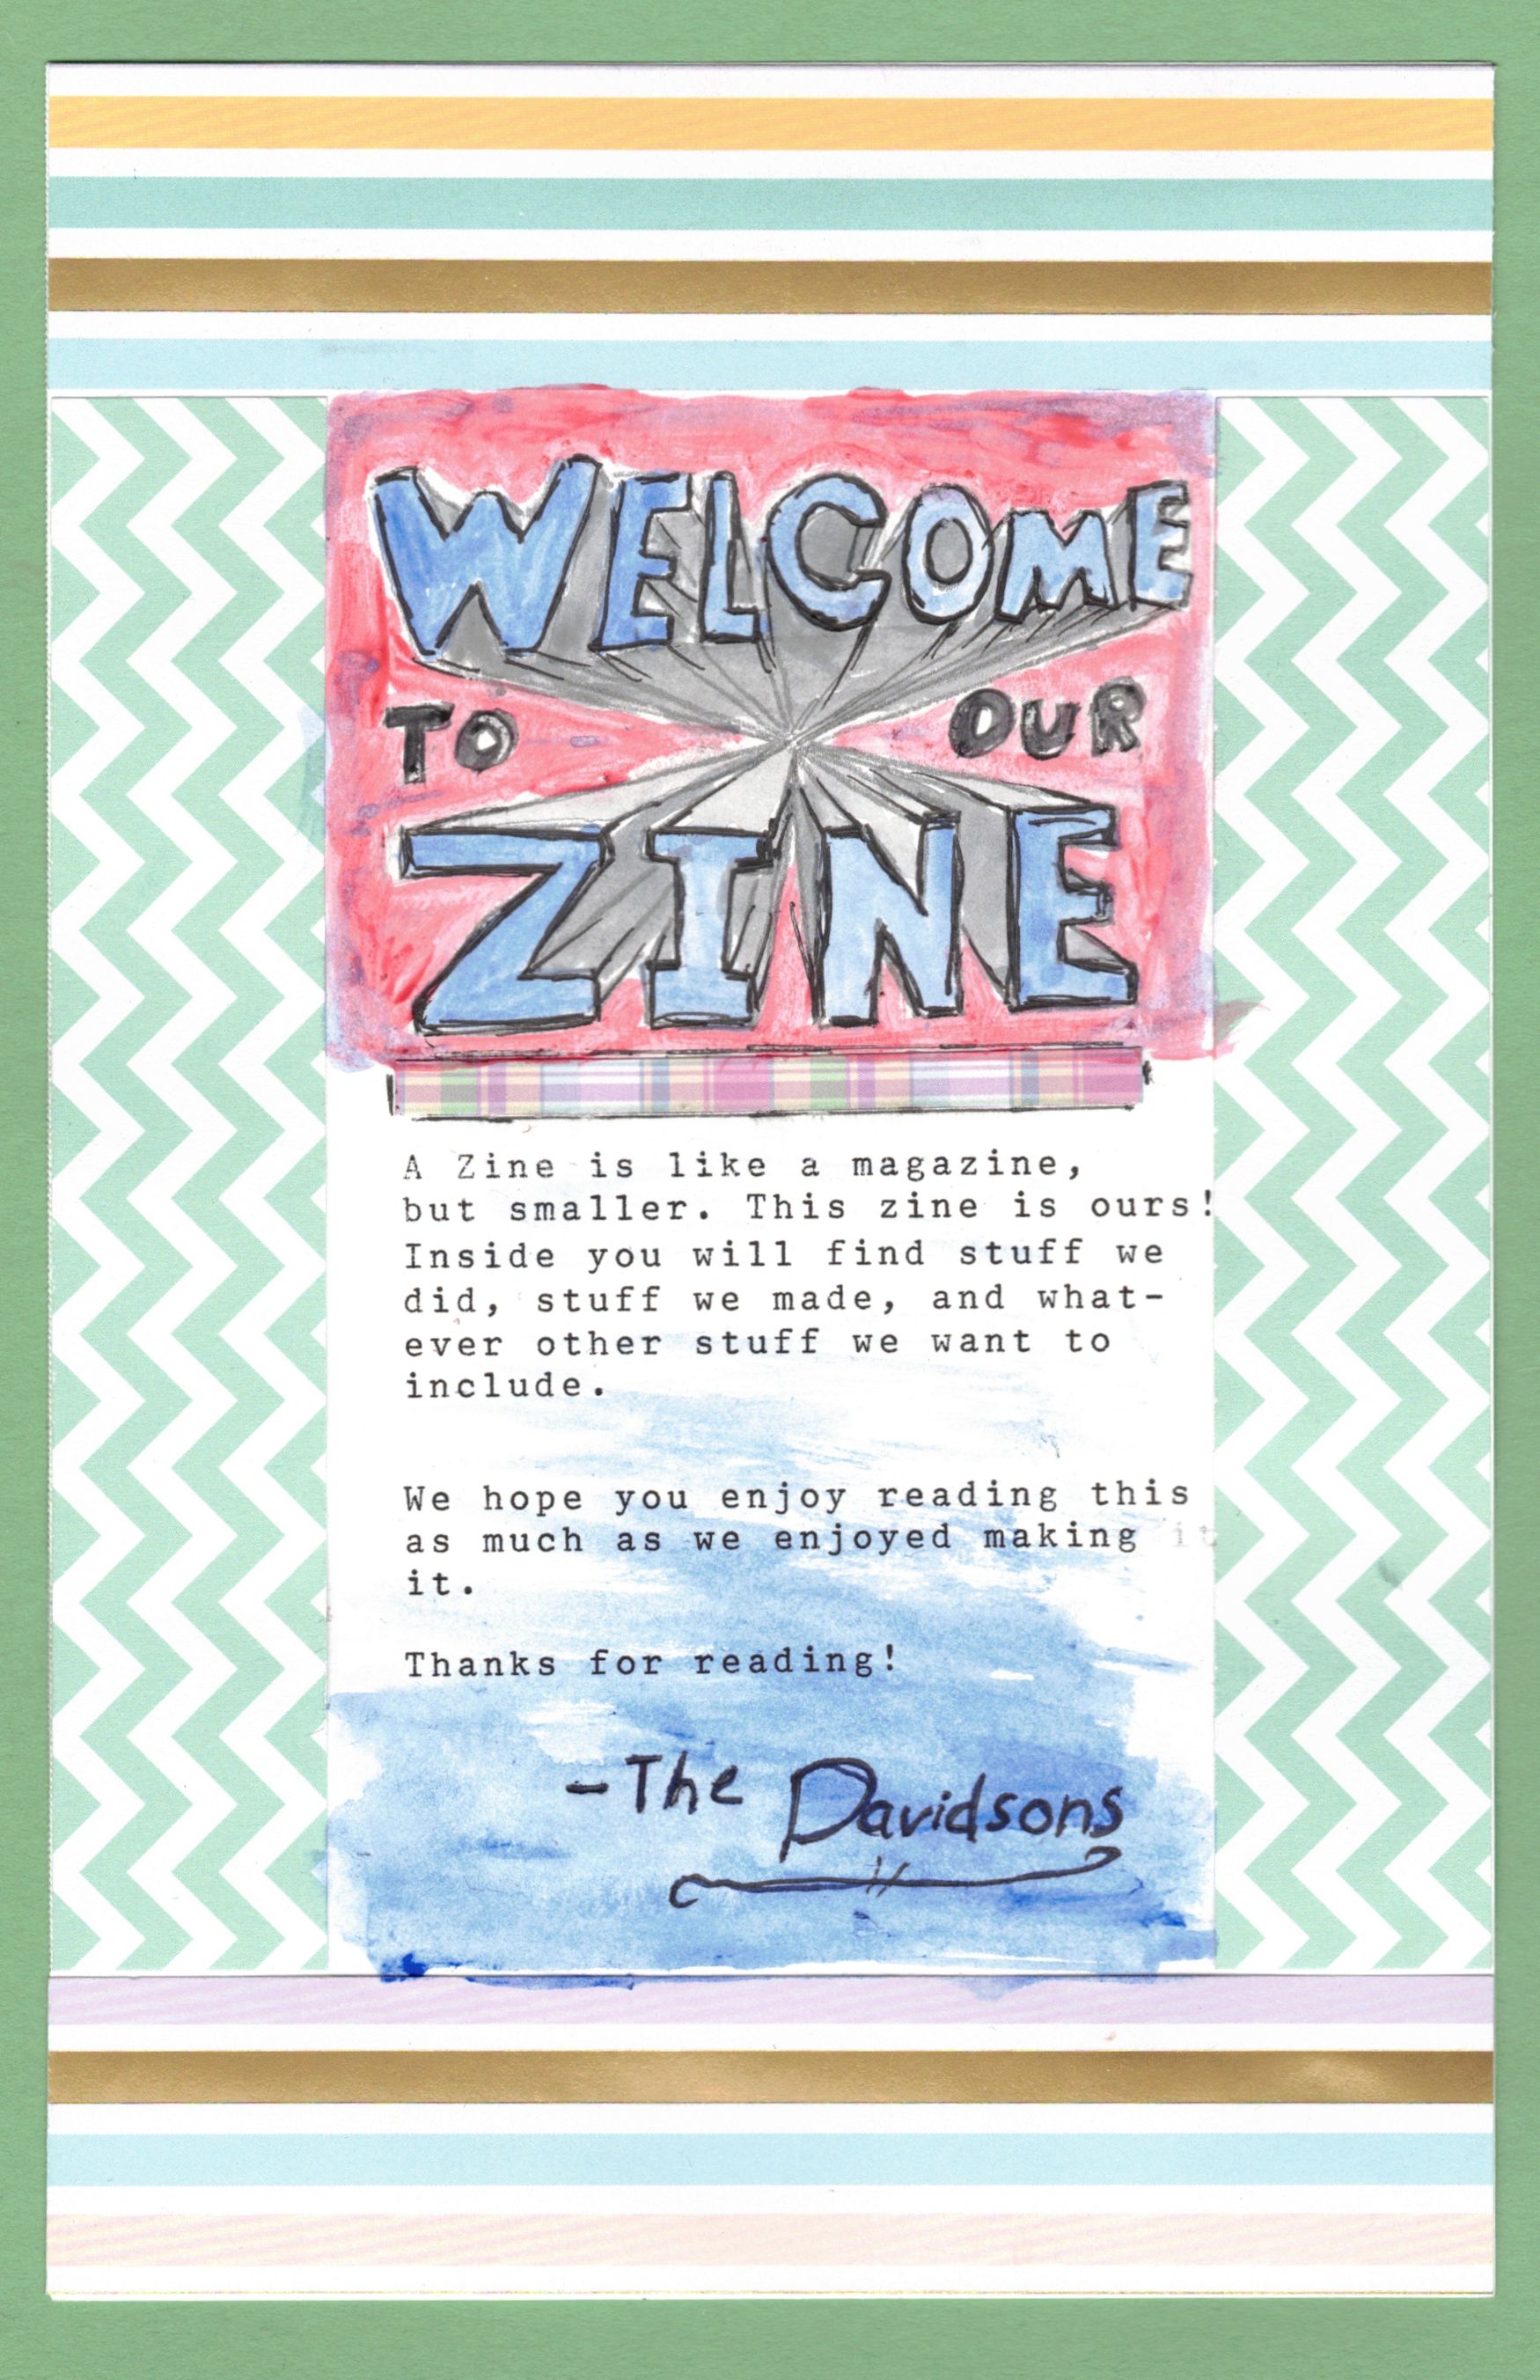 WELCOME
TO OUR
ZINE
A Zine is like a magazine,
but smaller. This zine is ours!
Inside you will find stuff we
did, stuff we made, and what-
ever other stuff we want to
include.
We hope you enjoy reading this
as much as we enjoyed making it
it.
Thanks for reading!
-The Davidsons